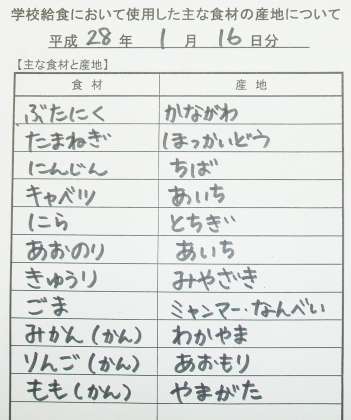 学校給食において使用した主な食材の産地について
平成 28 年 1 月 16 日分
【主な食材と産地】
食材 産地
ぶたにく かながわ
たまねぎ ほっかいどう
にんじん ちば
キャベツ あいち
にら とちぎ
あおのり あいち
きゅうり みやざき
ごま ミャンマー・なんべい
みかん(かん) わかやま
りんご(かん) あおもり
もも(かん) やまがた